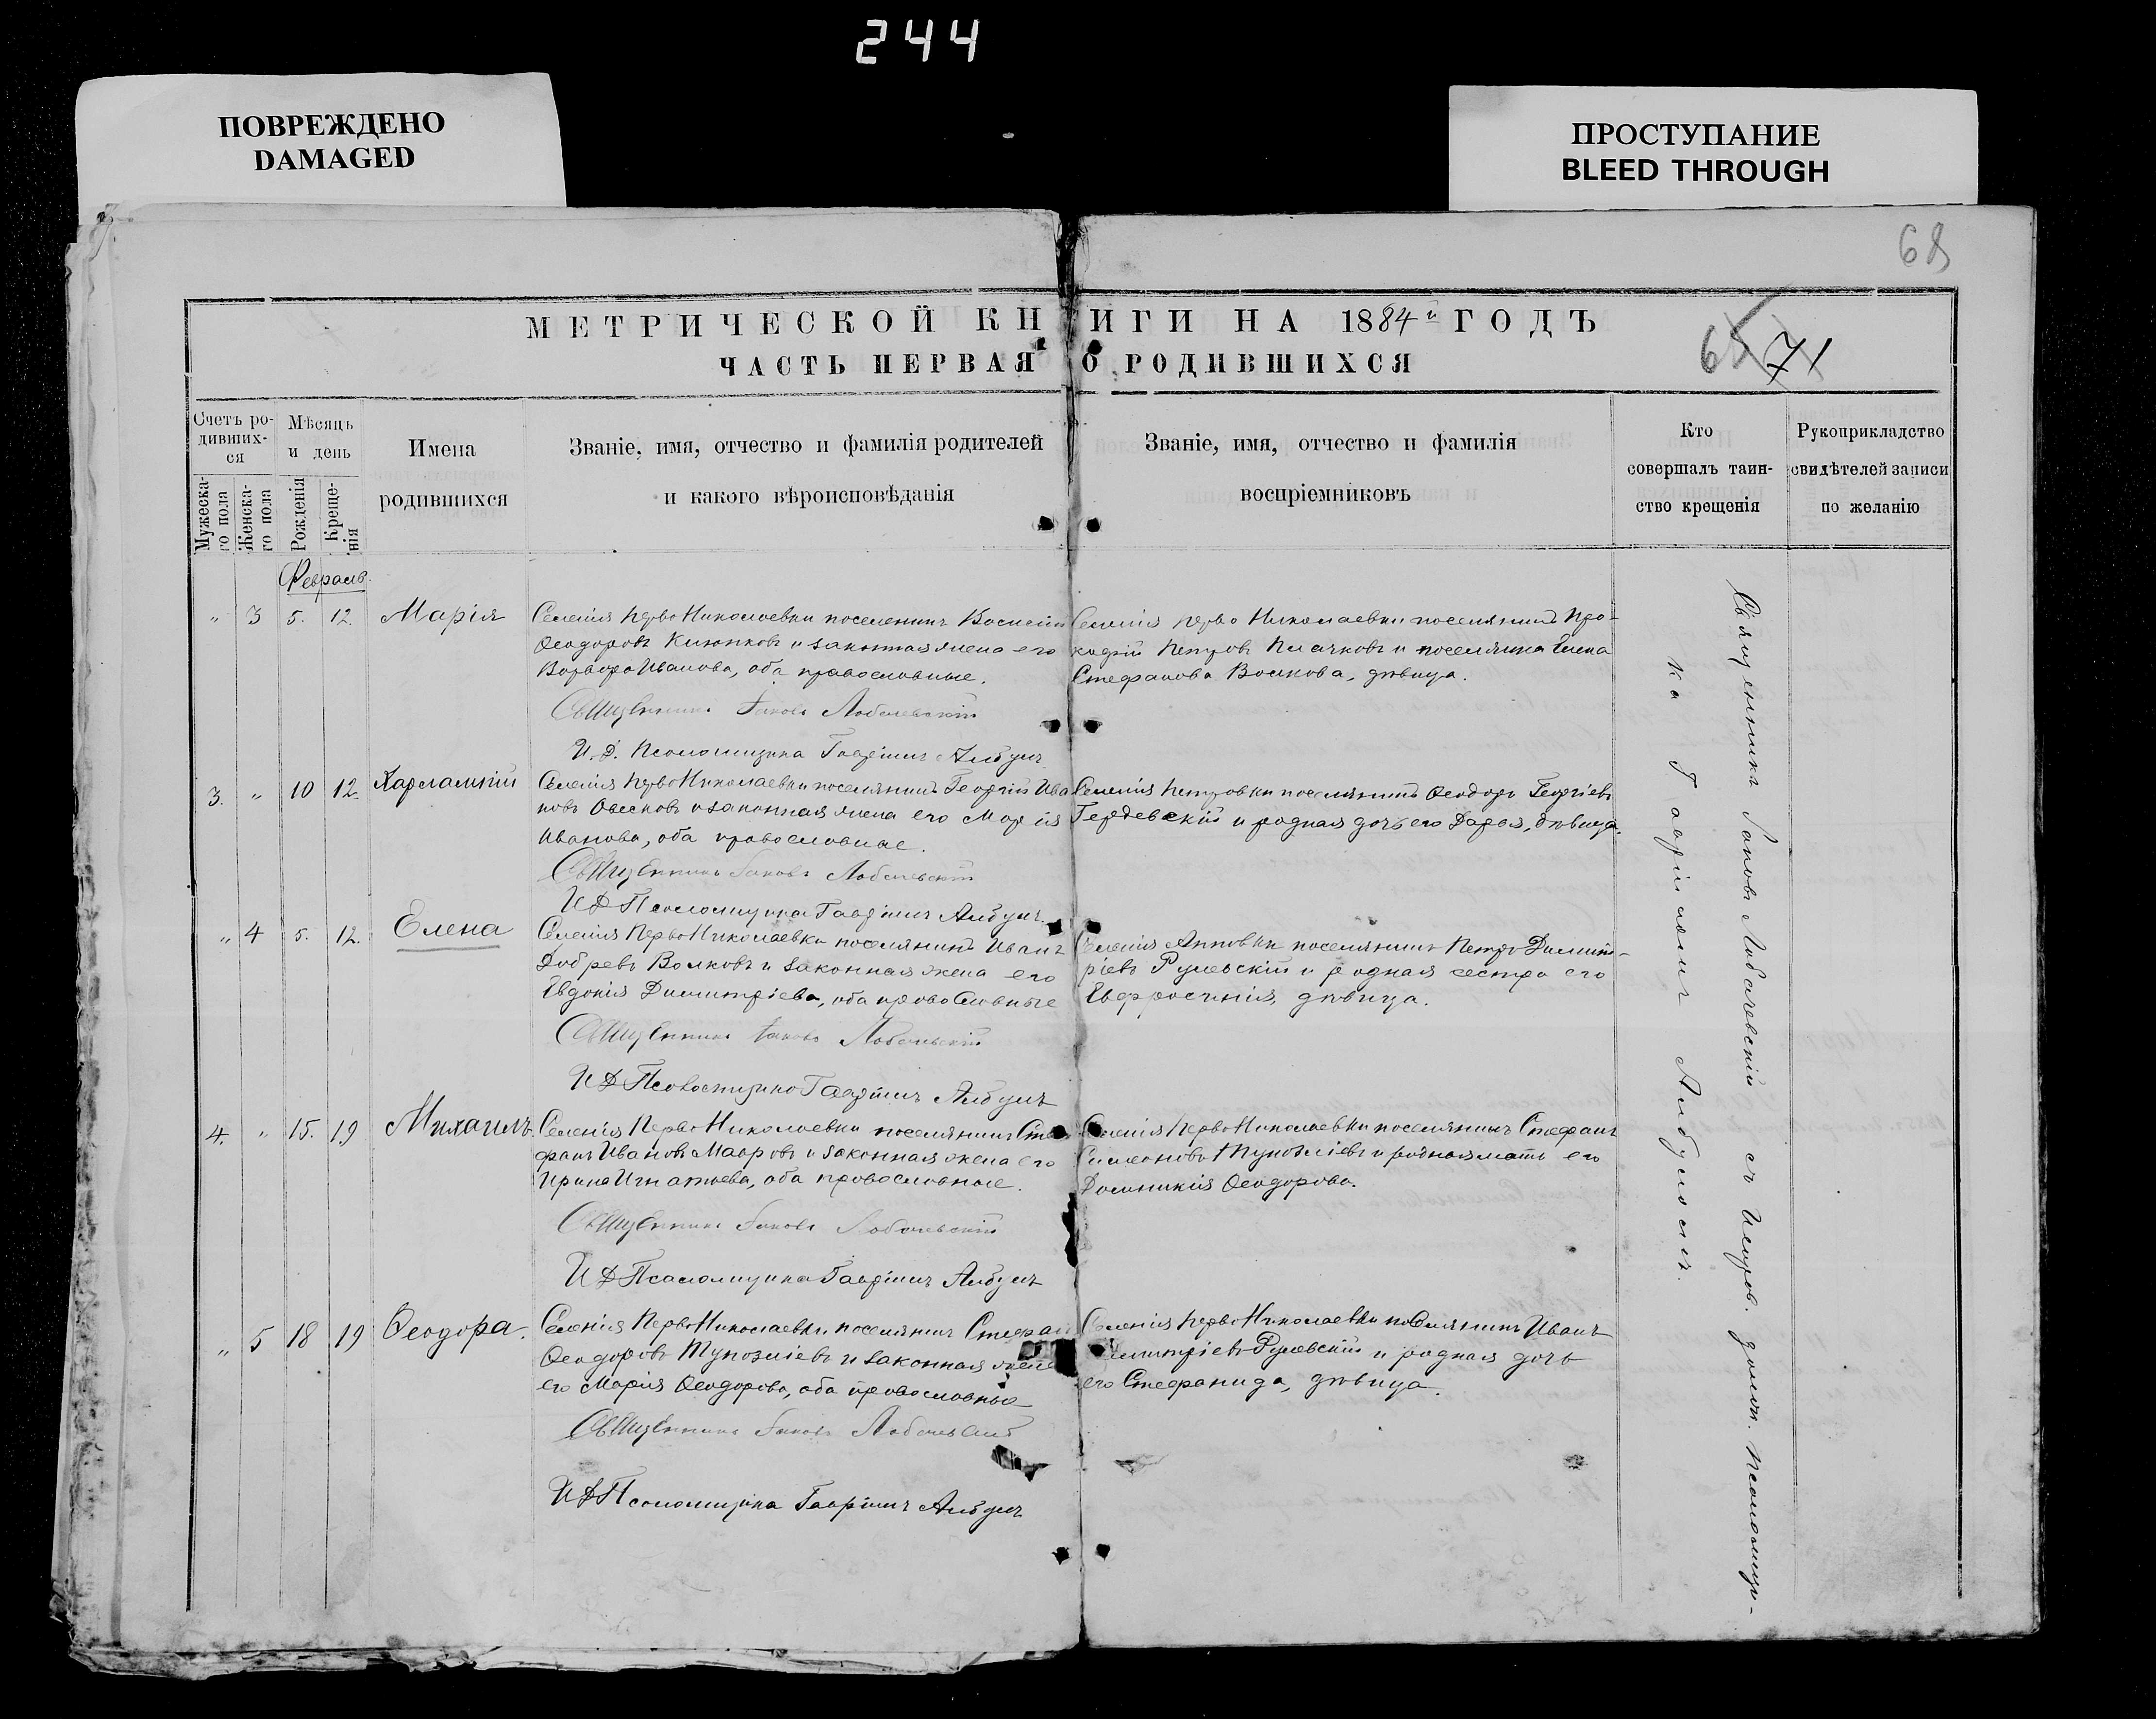 244
ПОВРЕЖДЕНО
DAMAGED
ПРОСТУПАНИЕ
BLEED THROUGH
68
МЕТРИЧЕСКОЙ КНИГИ НА 1884й ГОДЪ
ЧАСТЬ ПЕРВАЯ О РОДИВШИХСЯ
65 71
Счетъ ро-
дивших-
ся
Мужеска-
го пола
Женска-
го пола
Мѣсяцъ
и день
Рожденія
Креще-
нія
Имена
родившихся
Званіе, имя, отчество и фамилія родителей
и какого вѣроисповѣданія
Званіе, имя, отчество и фамилія
воспріемниковъ
Кто
совершалъ таин-
ство крещенія
Рукоприкладство
свидѣтелей записи
по желанію
Февраль.
" 3 5. 12. Марія
Селенія Перво Николаевки поселянинъ Василій
Ѳеодоровъ и законная жена его
Варвара Иванова, оба православные.
Священникъ Іаковъ Лобачевскій
И.д. Псаломщика Гавріилъ Албулъ
Селенія Перво Николаевки поселянинъ Про-
кофій Петровъ Плачковъ и поселянка Елена
Стефанова Волкова, дѣвица.
3. " 10 12. Харлампій
Селенія Перво Николаевки поселянинъ Георгій Ива
новъ Овесковъ и законная жена его Марія
Иванова, оба православные.
Священникъ Іаковъ Лобачевскій
ИД Псаломщика Гавріилъ Албулъ.
Селенія Петровки поселянинъ Ѳеодоръ Георгіевъ
и родная дочь его Дарья, дѣвица.
" 4 5. 12. Елена
Селенія Перво Николаевки поселянинъ Иванъ
Добревъ Волковъ и законная жена его
Евдокія Димитріева, оба православные
Священникъ Іаковъ Лобачевскій
ИД Псаломщика Гавріилъ Албулъ
Селенія Анновки поселянинъ Петръ Димит-
ріевъ Рулевскій и родная сестра его
Евфросинія, дѣвица.
4. " 15. 19 Михаилъ.
Селенія Перво Николаевки поселянинъ Сте
фанъ Ивановъ Мавровъ и законная жена его
Ирина Игнатьева, оба православные.
Священникъ Іаковъ Лобачевскій
ИД Псаломщика Гавріилъ Албулъ
Селенія Перво Николаевки поселянинъ Стефанъ
Симеоновъ Тупозліевъ и родная мать его
Доминикія Ѳеодорова.
" 5 18 19 Ѳеодора.
Селенія Перво Николаевки поселянинъ Стефанъ
Ѳеодоровъ Тупозліевъ и законная жена
его Марія Ѳеодорова, оба православные
Священникъ Іаковъ Лобачевскій
ИД Псаломщика Гавріилъ Албулъ
Селенія Перво Николаевки поселянинъ Иванъ
Димитріевъ Рулевскій и родная дочь
его Стефанида, дѣвица.
Священникъ Іаковъ Лобачевскій съ Исправ. должн. Псаломщи-
ка Гавріиломъ Албуломъ.